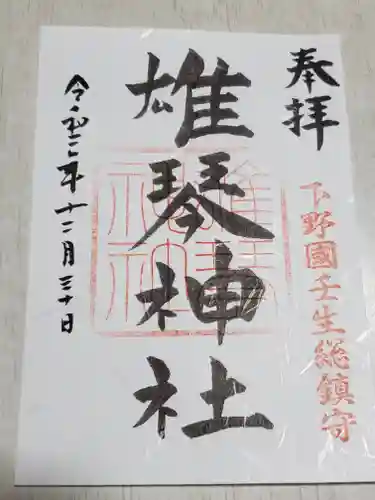 奉拝
下野國壬生総鎮守
雄琴神社
雄琴神社
令和二年十二月三十日